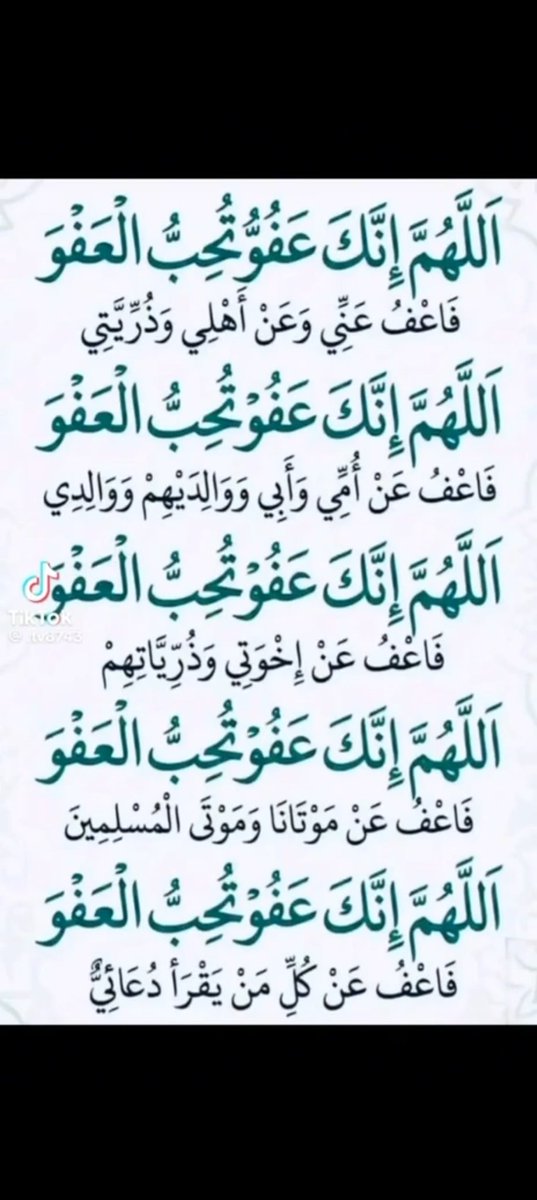 اَللَّهُمَّ إِنَّكَ عَفُوٌّ تُحِبُّ الْعَفْوَ
فَاعْفُ عَنِّي وَعَنْ أَهْلِي وَذُرِّيَّتِي
اَللَّهُمَّ إِنَّكَ عَفُوْ تُحِبُّ الْعَفْوَ
فَاعْفُ عَنْ أُمِّي وَأَبِي وَوَالِدَيْهِمْ وَوَالِدِي
اَللَّهُمَّ إِنَّكَ عَفُوْ تُحِبُّ الْعَفْوَ
TikTok
فَاعْفُ عَنْ إِخْوَتِي وَذُرِّيَّاتِهِمْ
اَللَّهُمَّ إِنَّكَ عَفُوْ تُحِبُّ الْعَفْوَ
فَاعْفُ عَنْ مَوْتَانَا وَمَوْتَى الْمُسْلِمِينَ
اَللَّهُمَّ إِنَّكَ عَفُوْ تُحِبُّ الْعَفْوَ
فَاعْفُ عَنْ كُلِّ مَنْ يَقْرَأ دُعَائِيٌّ